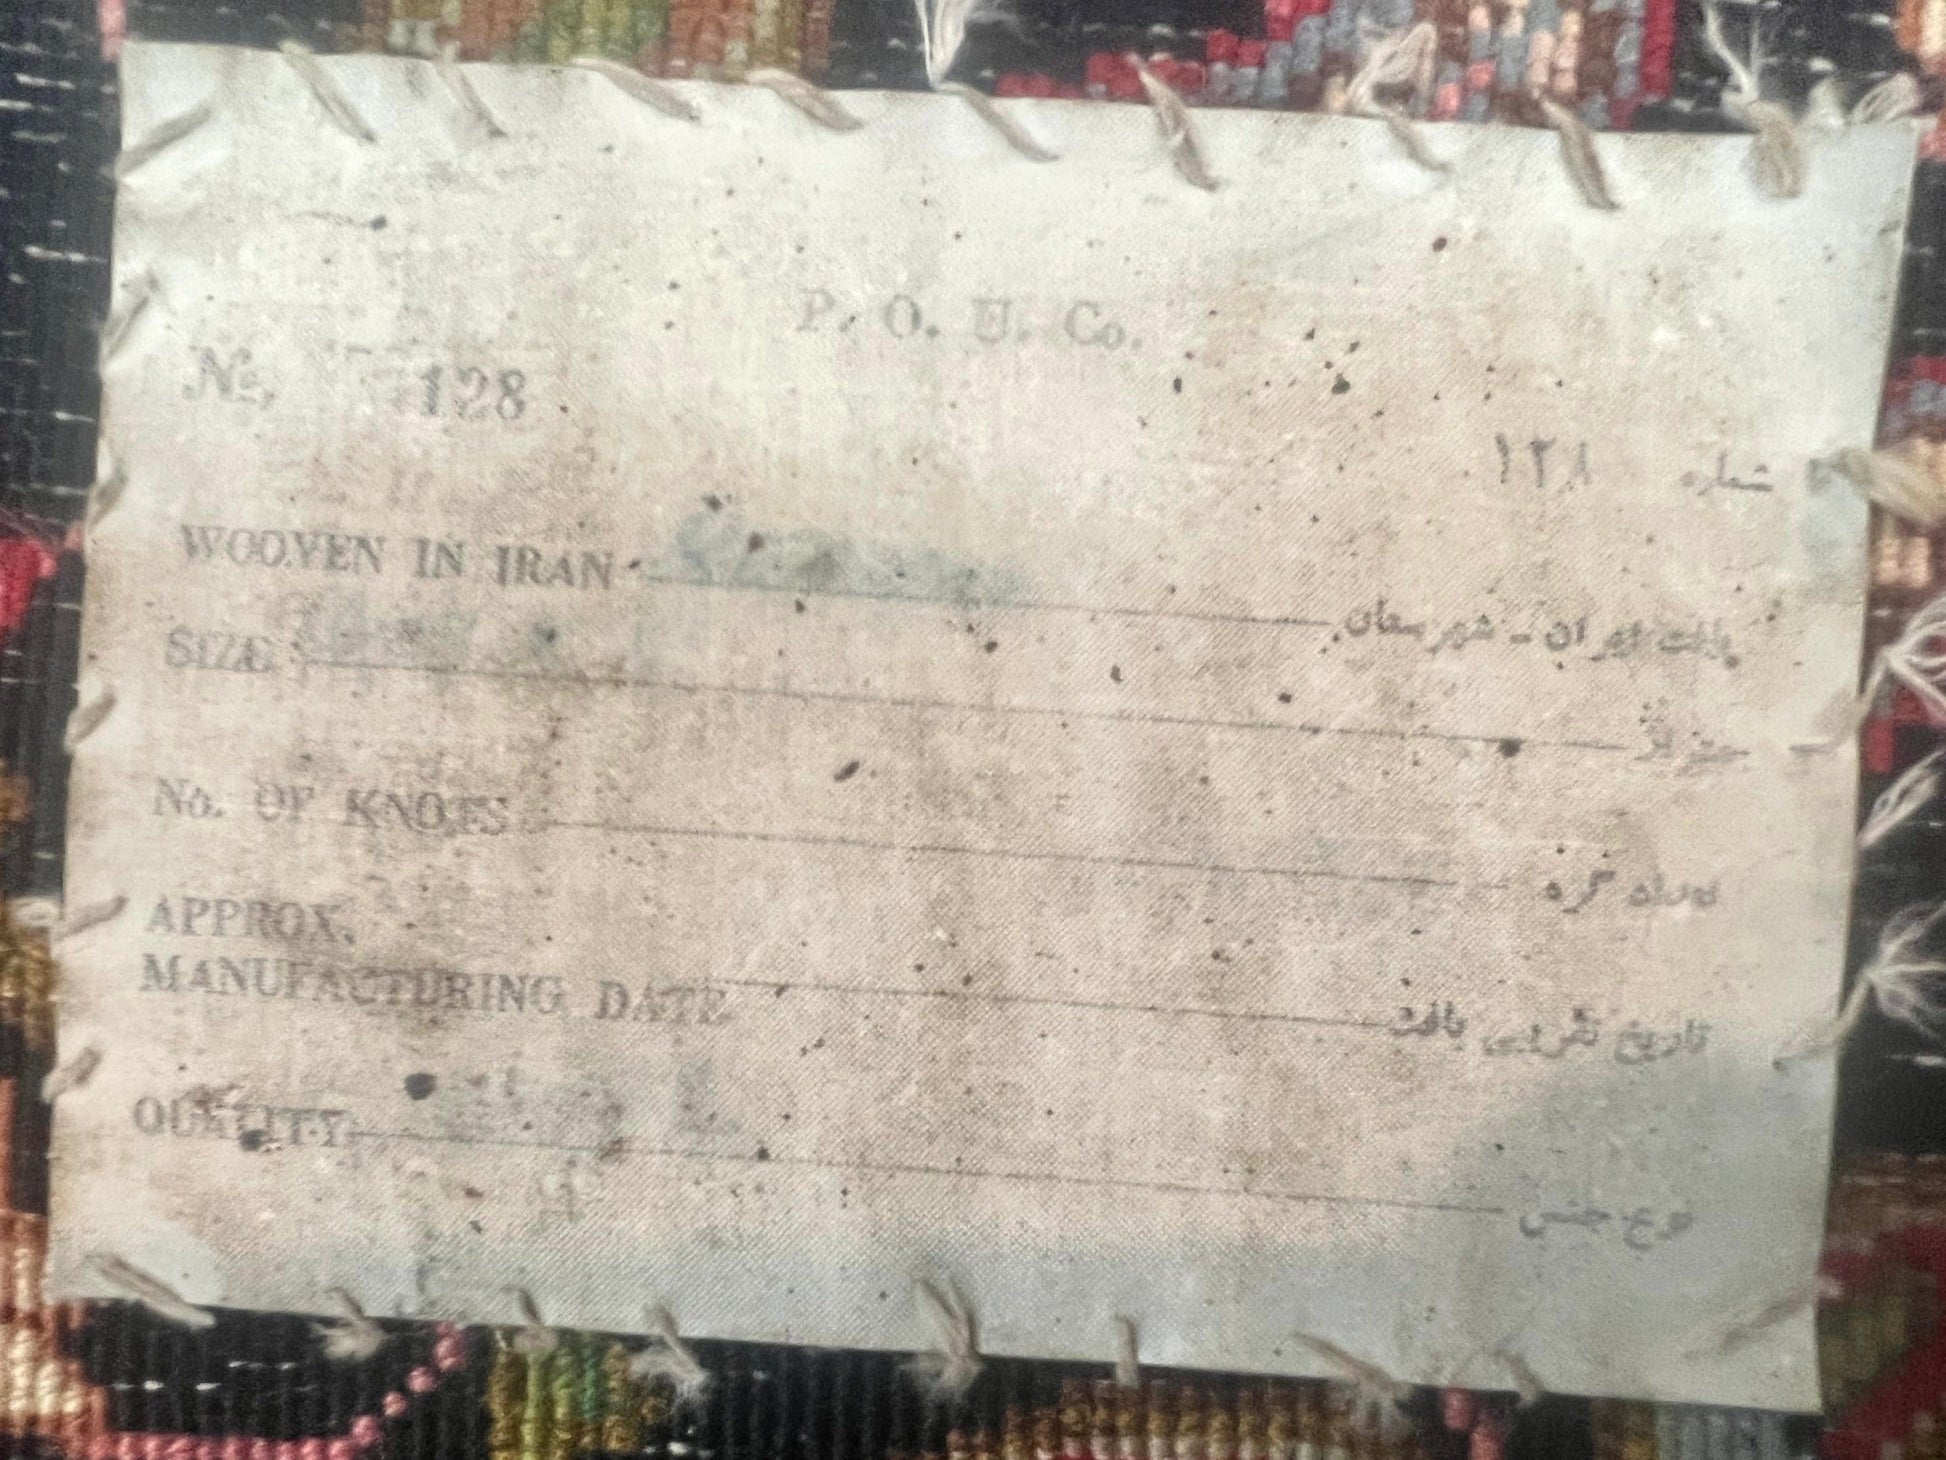 P. O. U. Co.
No. 128
شماره ۱۲۸
WOOVEN IN IRAN
بافت ایران - شهرستان
SIZE
No. OF KNOTS
تعداد گره
APPROX.
MANUFACTURING DATE
تاریخ تقریبی بافت
QUALITY
نوع جنس